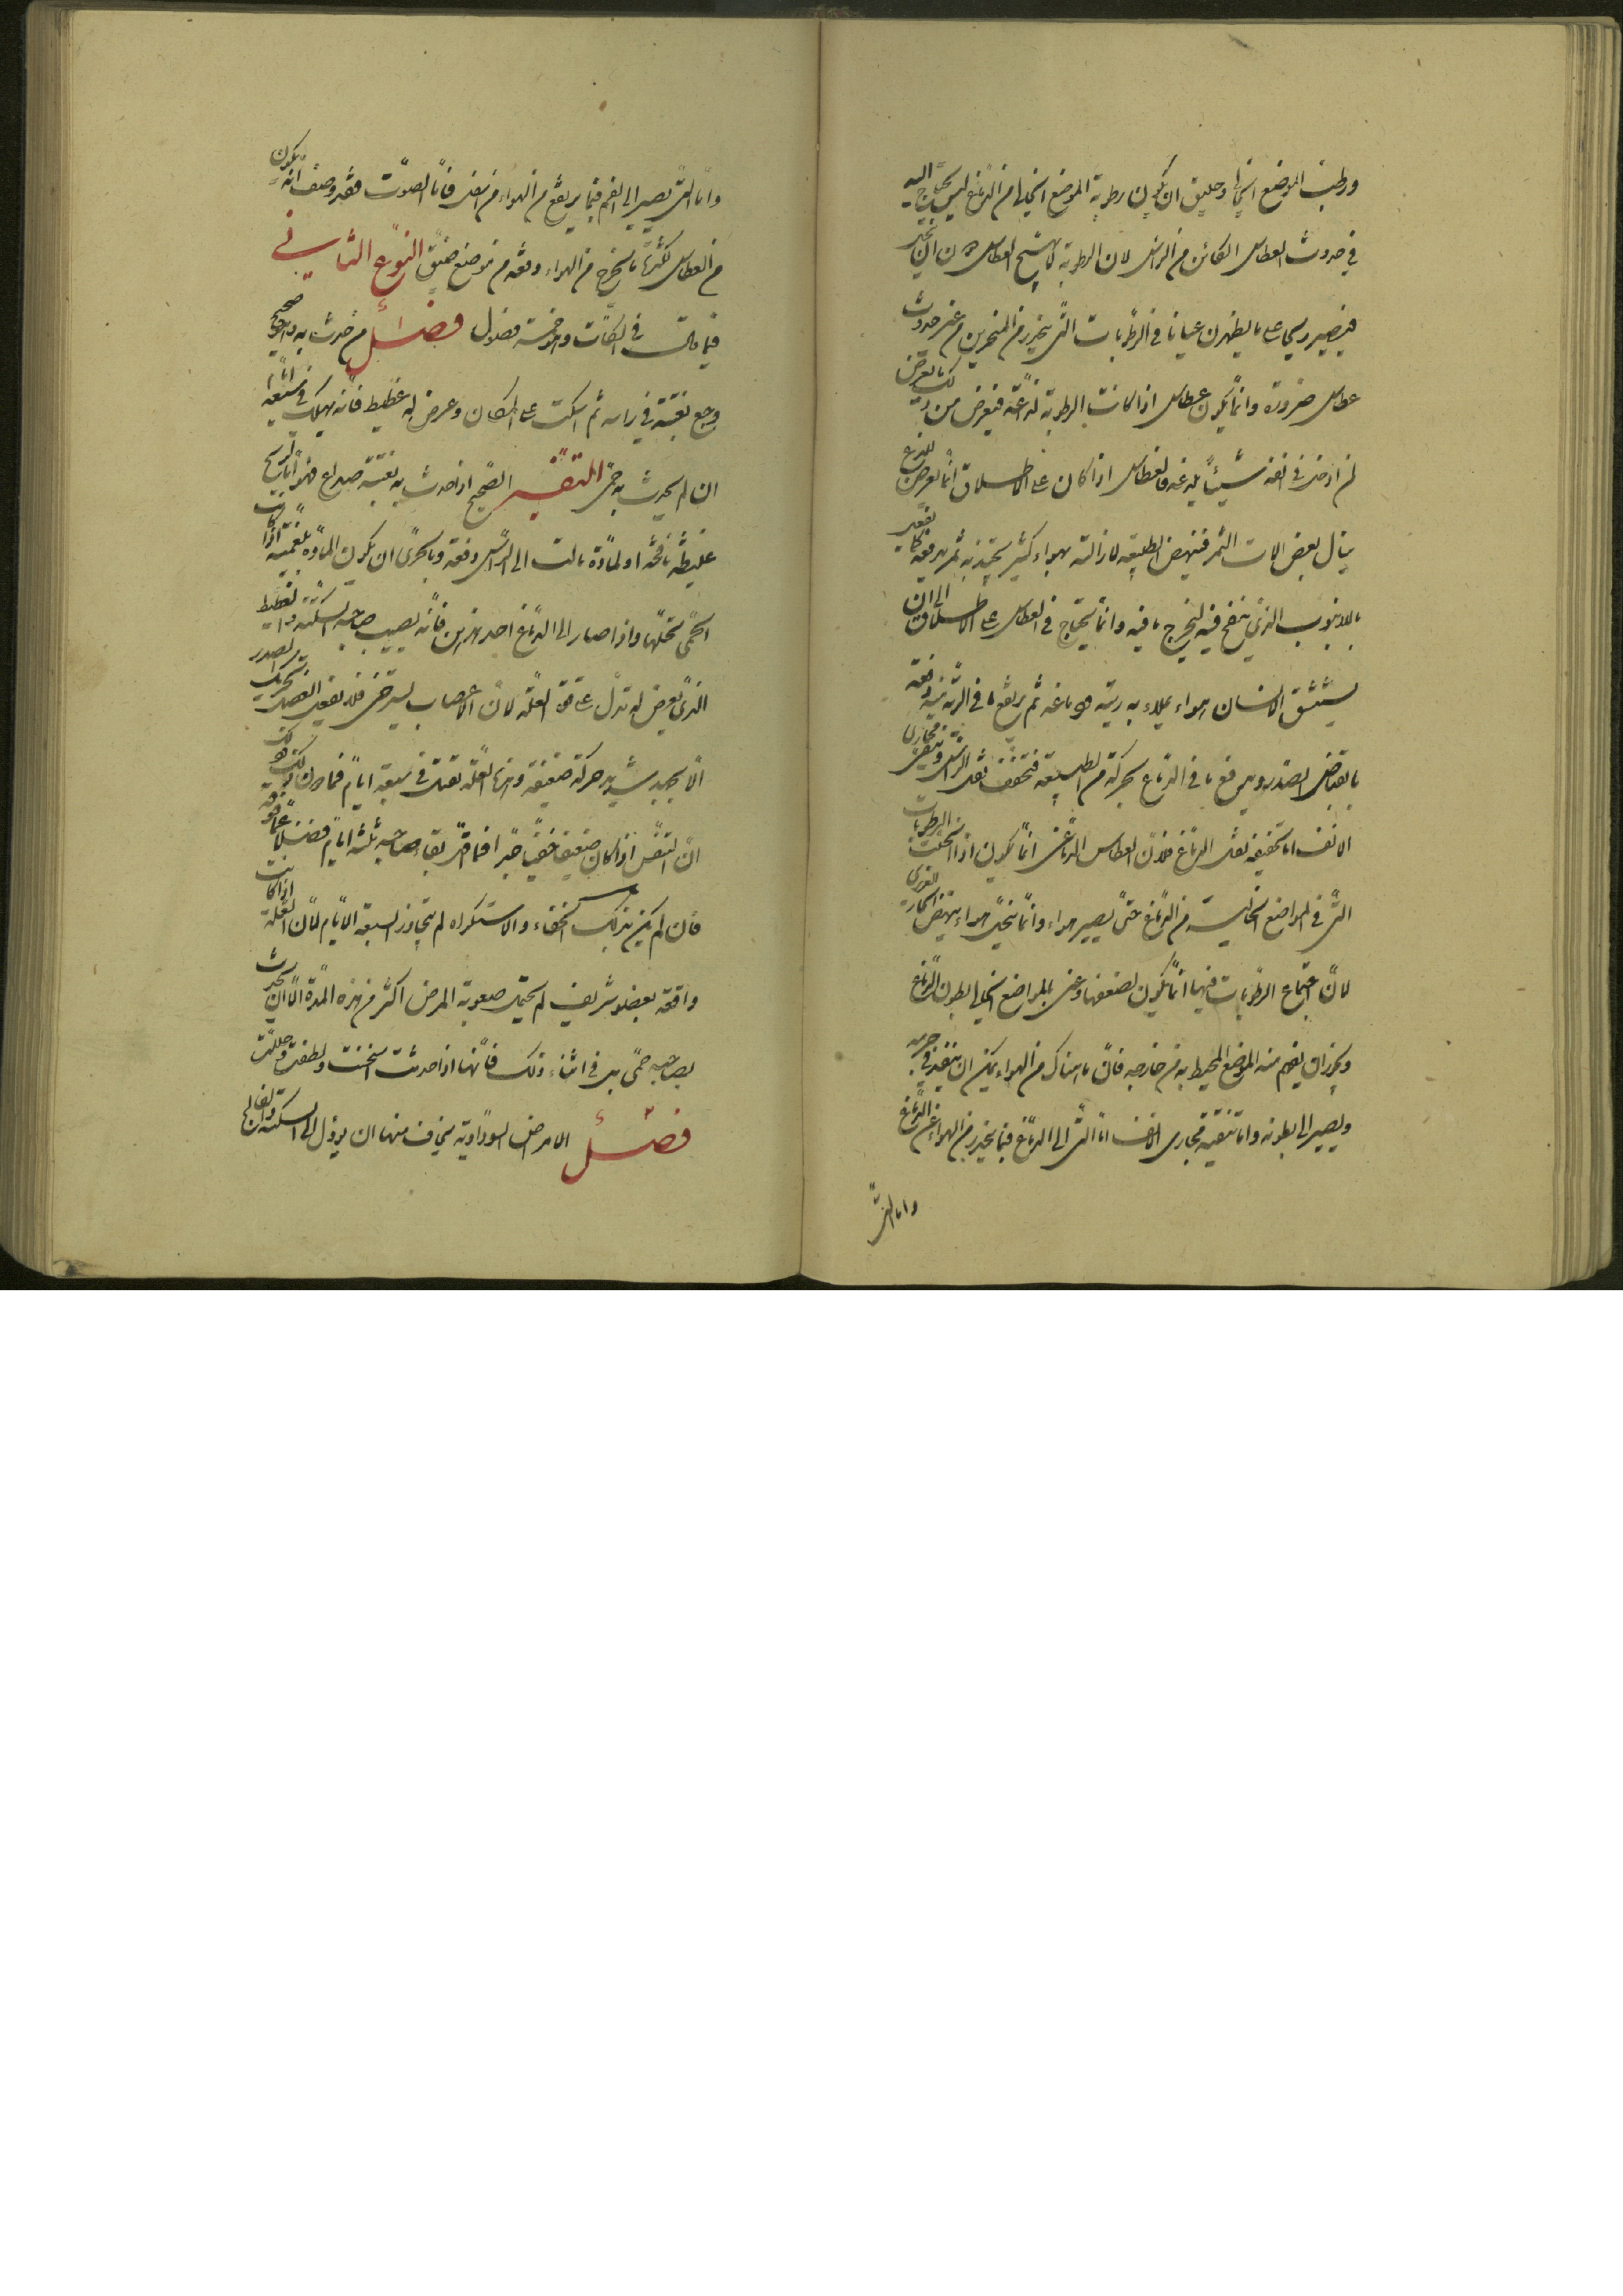 ورطب الموضع الخالي وخليق ان يكون رطوبة الموضع الخالي من الدماغ ليس يحتاج اليه
في حدوث العطاس الكائن من الراس لان الرطوبة لا تهيج العطاس دون ان تنحل
فيصير ريحا على ما يظهر عيانا في الرطوبات التي تنحدر من المنخرين من غير حدوث
عطاس ضرورة وانما يكون عطاس اذا كانت الرطوبة لذاعة فيعرض من ذلك ما يعرض
لمن ادخل في انفه شيئا يلذعه فالعطاس اذا كان على الاطلاق انما يعرض للذع
ينال بعض الات الشم فتنهض الطبيعة لازالته بهواء كثير تجتذبه ثم تدفعه كما يفعل
بالانبوب الذي ينفخ فيه ليخرج ما فيه وانما يحتاج في العطاس على الاطلاق الى ان
يستنشق الانسان هواء يملاء به ريته ودماغه ثم يدفع ما في الرية منه دفعة
بانقباض الصدر ويدفع ما في الدماغ بحركة من الطبيعة فتخفف ثقل الراس وتنقى مجاري
الانف اما تخفيفه ثقل الدماغ فلان العطاس الدماغي انما يكون اذا سخنت الرطوبات
التي في المواضع الخالية من الدماغ حتى يصير هواء وانما تنحل هواء بنهوض الحار الغريزي
لان اجتماع الرطوبات فيها انما يكون لضعفها وعنى بالمواضع الخالية بطون الدماغ
ويجوز ان يفهم منه الموضع المحيط به من خارجه فان ما هناك من الهواء يمكن ان ينفذ في جرمه
ويصير الى بطونه واما تنقية مجاري الانف اما التي الى الدماغ فبما ينحدر من الهواء عن الدماغ
واما التي
واما التي تصير الى الفم فبما يرتفع من الهواء من اسفل فاما الصوت فقد وصف انه يكون
من العطاس لكثرة ما يخرج من الهواء دفعة من موضع ضيق النوع الثاني
فيما قالت في السكات وهو خمسة فصول فصل من حدث به وهو صحيح
وجع بغتة في راسه ثم اسكت على المكان وعرض له غطيط فانه يهلك في سبعة ايام
ان لم يحدث به حمى التفسير الصحيح اذا حدث به بغتة صداع فهو اما لريح
غليظة نافخة او لمادة مالت الى الراس دفعة وبالحرى ان يكون المادة بلغمية اذا كانت
الحمى تحلها واذا صار الى الدماغ احد هذين فانه يصيب صاحبه السكتة والغطيط
الذي يعرض له تدل على قوة العلة لان الاعصاب يسترخى فلا يفعل العضل تحريك الصدر
الا بجهد شديد حركة ضعيفة وهذه العلة تقتل في سبعة ايام فما دون ذلك وذلك
ان التنفس اذا كان ضعيفا خفيا جدا فما اقل بقاء صاحبه ثلثة ايام فضلا عما فوقه
فان لم يكن بذلك الخفاء والاستكراه لم يتجاوز السبعة الايام لان العلة اذا كانت
واقعة بعضو شريف لم يحتمل صعوبة المرض اكثر من هذه المدة الا ان يحدث
بصاحبه حمى في اثناء ذلك فانها اذا حدثت اسخنت ولطفت وحللت
فصل الامراض السوداوية يخاف منها ان يؤل الى السكتة والفالج